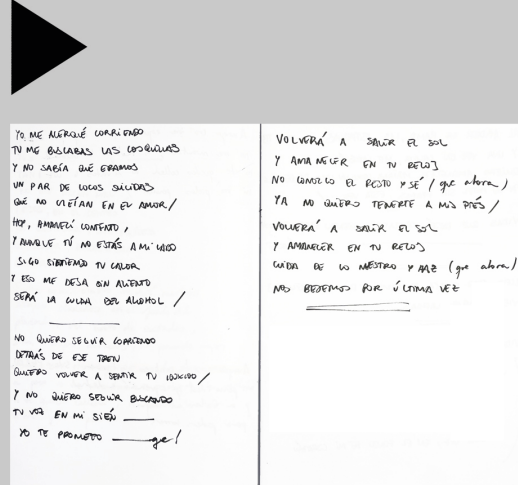 YO ME ACERQUÉ CORRIENDO
TU ME BUSCABAS LAS COSQUILLAS
Y NO SABÍA QUE ERAMOS
UN PAR DE LOCOS SUICIDAS
QUE NO CREÍAN EN EL AMOR /
HOY, AMANECÍ CONTENTO,
Y AUNQUE TÚ NO ESTÁS A MI LADO
SIGO SINTIENDO TU CALOR
Y ESO ME DEJA SIN ALIENTO
SERÁ LA CULPA DEL ALCOHOL /
NO QUIERO SEGUIR CORRIENDO
DETRÁS DE ESE TREN
QUIERO VOLVER A SENTIR TU /
Y NO QUIERO SEGUIR BUSCANDO
TU VOZ EN MI SIÉN
YO TE PROMETO que!
VOLVERÁ A SALIR EL SOL
Y AMANECER EN TU RELOJ
NO CONOZCO EL RESTO Y SÉ / (que ahora)
YA NO QUIERO TENERTE A MIS PIÉS /
VOLVERÁ A SALIR EL SOL
Y AMANECER EN TU RELOJ
CUIDA DE LO NUESTRO Y HAZ (que ahora)
NOS BESEMOS POR ÚLTIMA VEZ